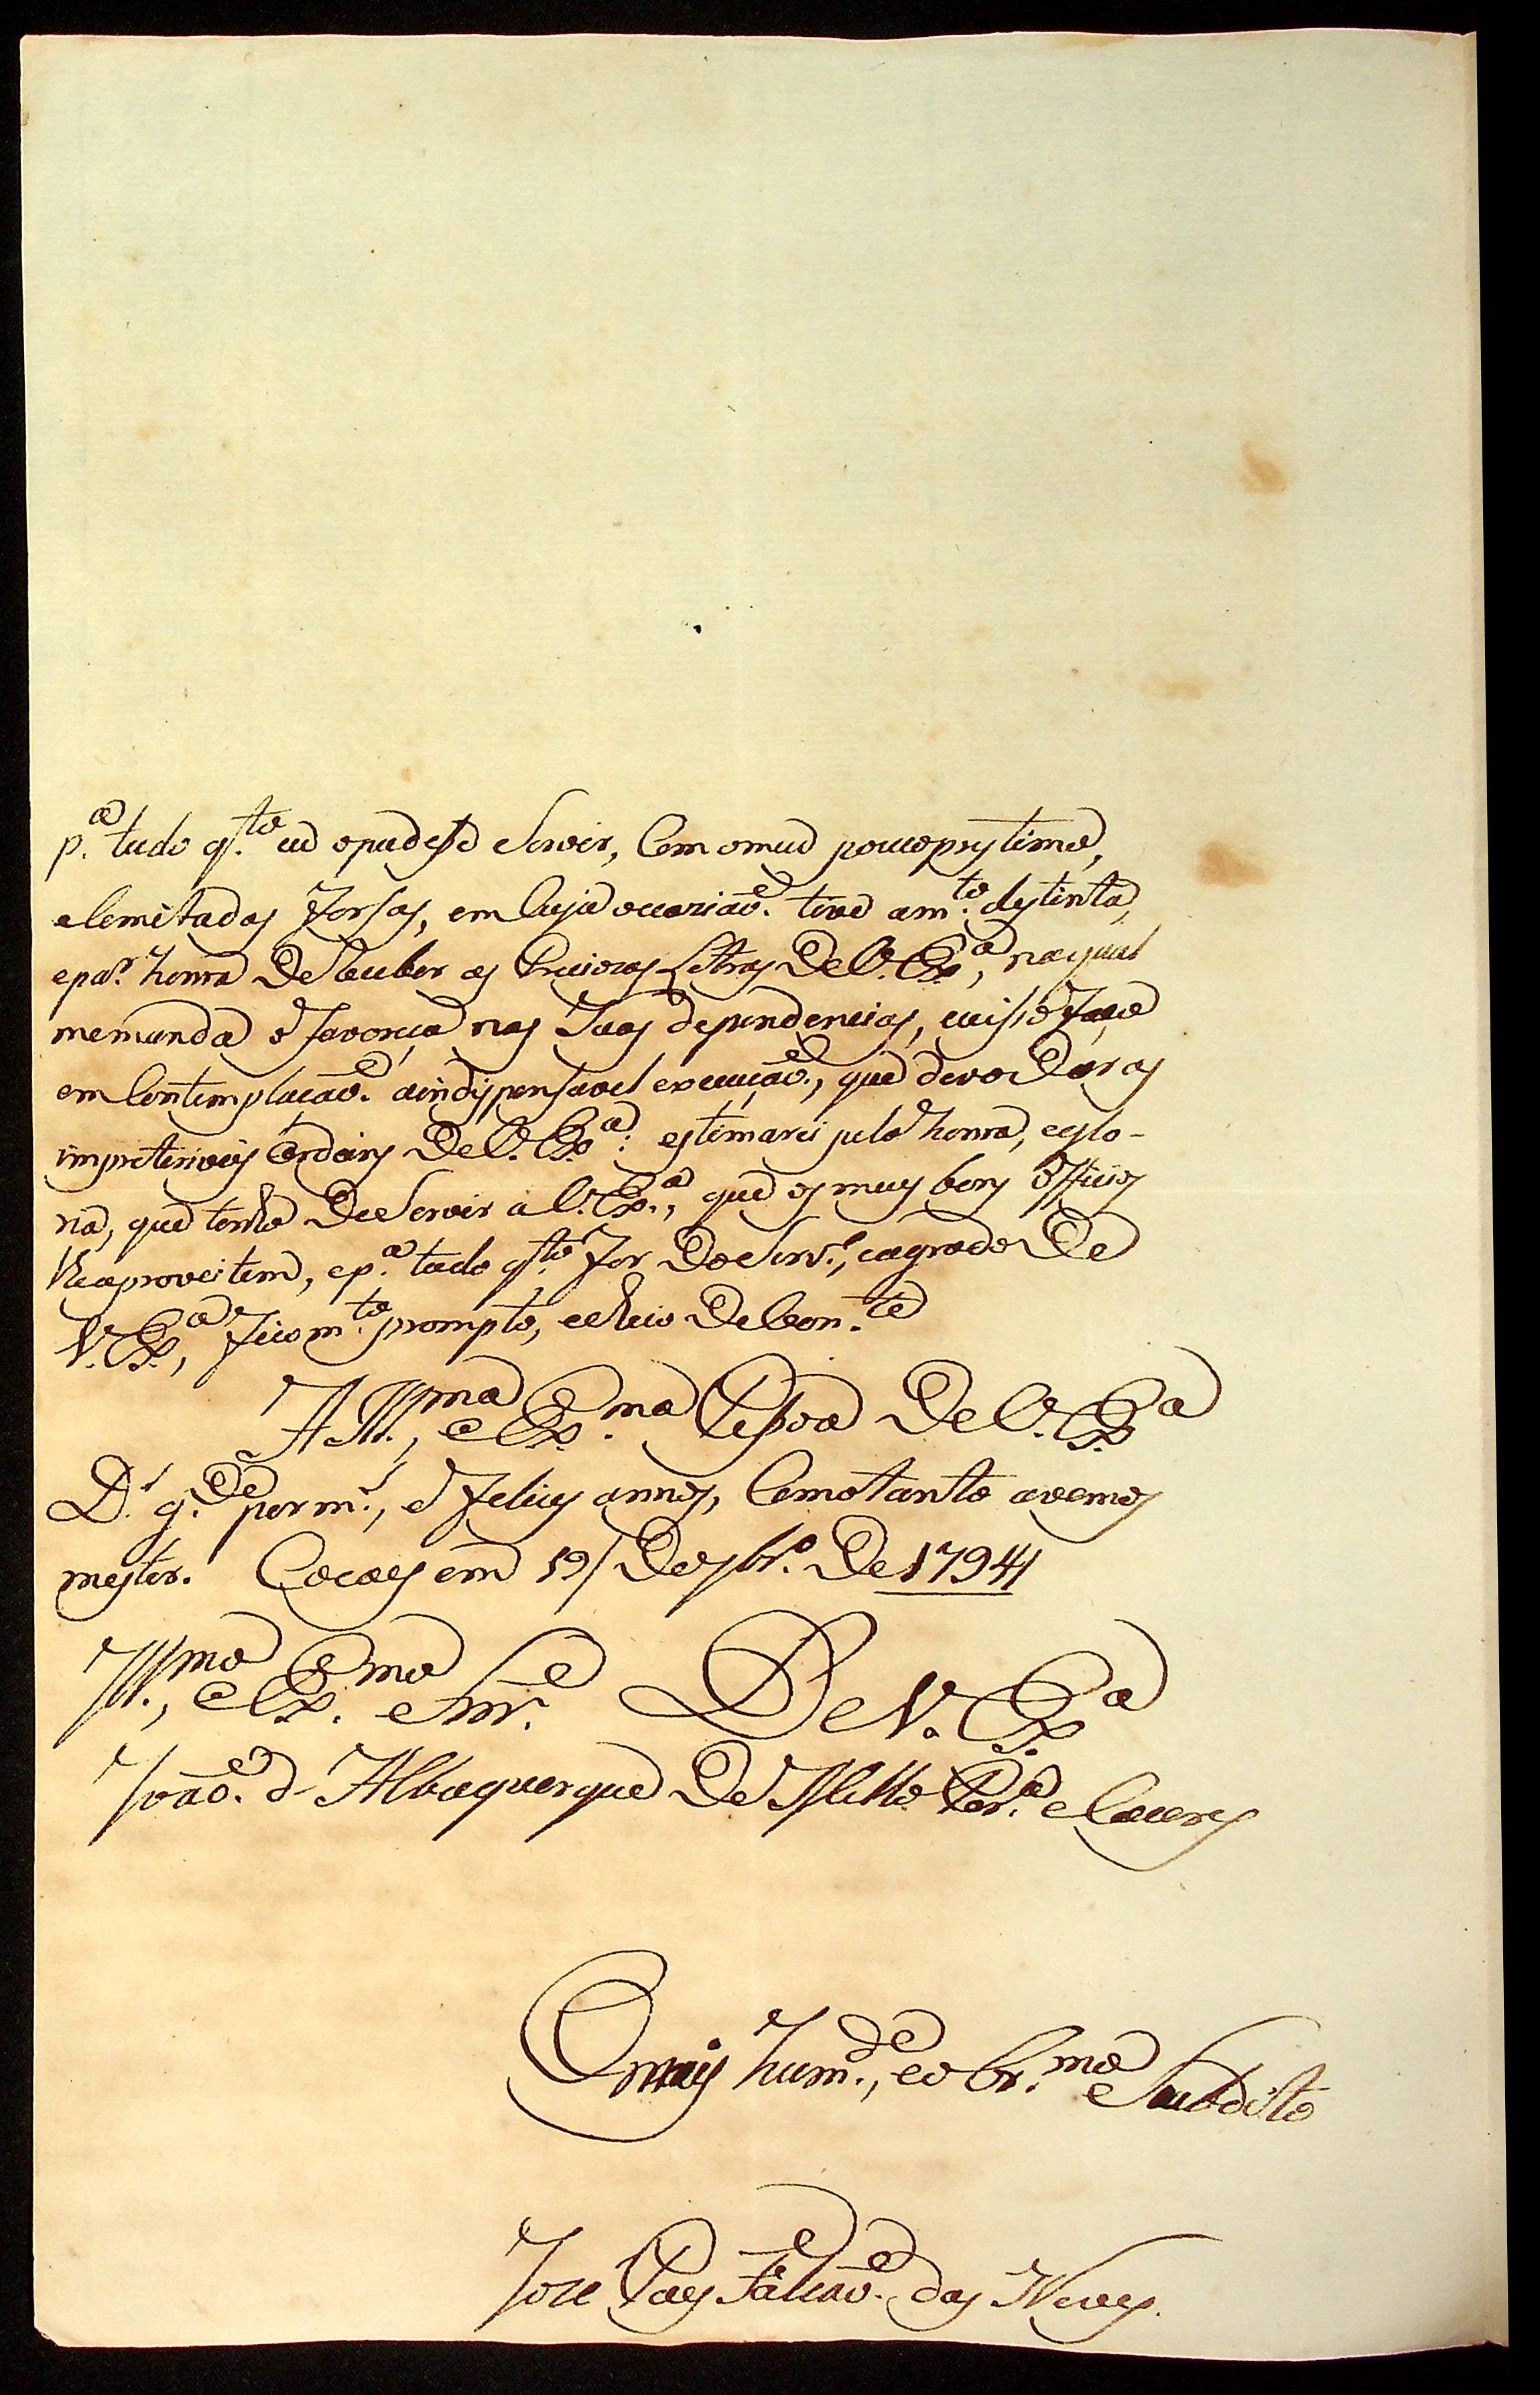 p.ª tudo q.to eu opudese Servir, Com omeu poucoprestimo,
elemitadas Forsas, em Cuja ocazião. tive am.to destinta,
epar. honra De Receber as Preciozas Letras De V. Ex.ª, naqual
memanda o favoreça nas Suas dependencias, eu isso Faço
em Contemplacão. aindispensavel execução., que devo Dar as
impreteriveis Ordens De V. Ex.ª: estimarei pela honra, eglo-
ria, que tenho De Servir a V. Ex.ª, que os muy bons Officios
lhe aproveitem, ep.ª tudo q.to For Do Serv.º, eagrado De
V. Ex.ª, Fico m.to prompto, echeio De Von.te
A Ill.ma, e Ex.ma Pesoa De V. Ex.ª
D.s g.de por m.s, e Felices annos, Como tanto avemos
mester. Cocaes em 19/ De 7br.º De 1794
Ill.mo, e Ex.mo Snr.
De V. Ex.ª
João. d' Albuquerque De Mello Per.ª e Caceres
O mais hum.de, e obr.mo Subdito
Joze Paes Falcão. das Neves.